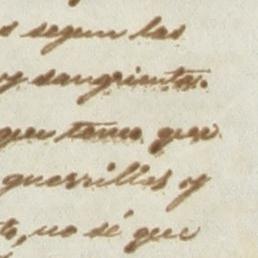 s segun las
y sangrientas.
que teme que
guerrillas y
to, no sé que